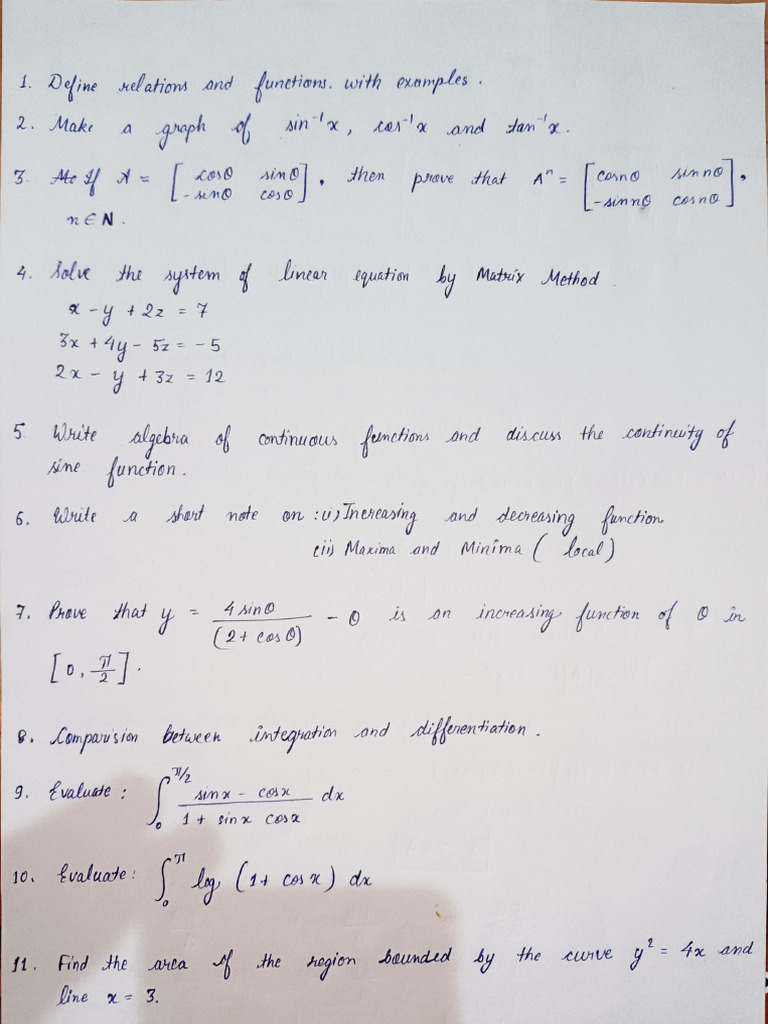 1. Define relations and functions. with examples.
2. Make a graph of sin⁻¹x, cos⁻¹x and tan⁻¹x.
3. If A = [cosθ sinθ; -sinθ cosθ], then prove that Aⁿ = [cosnθ sinnθ; -sinnθ cosnθ],
n∈N.
4. Solve the system of linear equation by Matrix Method
x - y + 2z = 7
3x + 4y - 5z = -5
2x - y + 3z = 12
5. Write algebra of continuous functions and discuss the continuity of
sine function.
6. Write a short note on : (i) Increasing and decreasing function
(ii) Maxima and Minima ( local)
7. Prove that y = 4 sinθ / (2 + cosθ) - θ is an increasing function of θ in
[0, π/2].
8. Comparision between integration and differentiation.
9. Evaluate : ∫₀^π/2 (sinx - cosx) / (1 + sinx cosx) dx
10. Evaluate : ∫₀^π log (1 + cosx) dx
11. Find the area of the region bounded by the curve y² = 4x and
line x = 3.